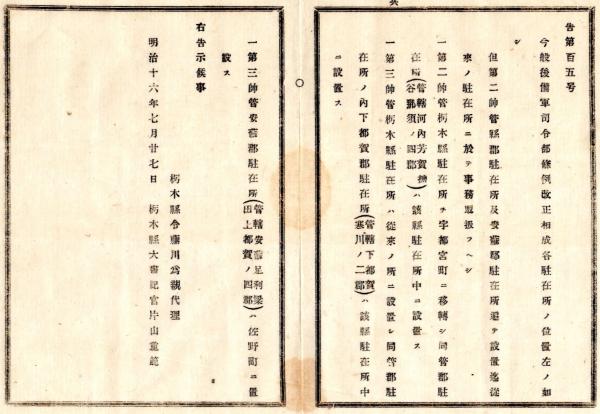 告第百五号
今般後備軍司令部條例改正相成各駐在所ノ位置左ノ如
シ
但第二帥管縣郡駐在所及安蘇郡駐在所追テ設置迄從
來ノ駐在所ニ於テ事務取扱フヘシ
一第二帥管栃木縣駐在所ヲ宇都宮町ニ移轉シ同管郡駐
在所(管轄河內芳賀塩谷那須ノ四郡)ハ該縣駐在所中ニ設置ス
一第三帥管栃木縣駐在所ハ從來ノ所ニ設置シ同管郡駐
在所ノ內下都賀郡駐在所(管轄下都賀寒川ノ二郡)ハ該縣駐在所中
ニ設置ス
一第三帥管安蘇郡駐在所(管轄安蘇足利梁田上都賀ノ四郡)ハ佐野町ニ置
設ス
右告示候事
栃木縣令藤川爲親代理
明治十六年七月廿七日 栃木縣大書記官片山重範